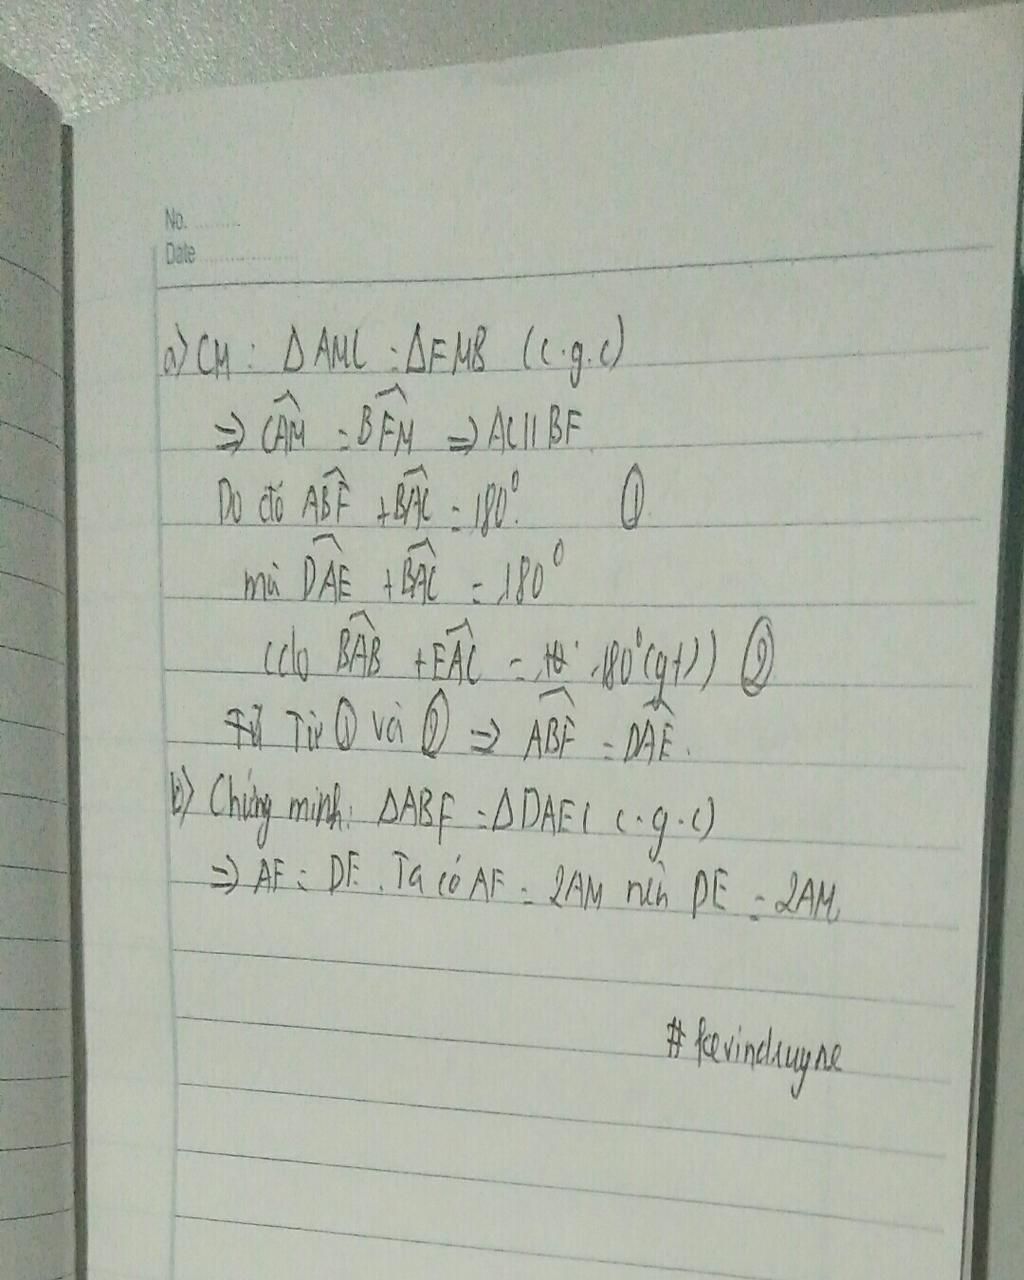 No. .........
Date ..................
a) CM : Δ AMC = Δ FMB (c.g.c)
⇒ CAM = BFM ⇒ AC // BF
Do đó ABF + BAC = 180°. ①
mà DAE + BAC = 180°
(do BAB + EAC = 180° (gt)) ②
Từ ① và ② ⇒ ABF = DAE.
b) Chứng minh: ΔABF = ΔDAE ( c.g.c)
⇒ AF = DE. Ta có AF = 2AM nên DE = 2AM.
# kevinduyne